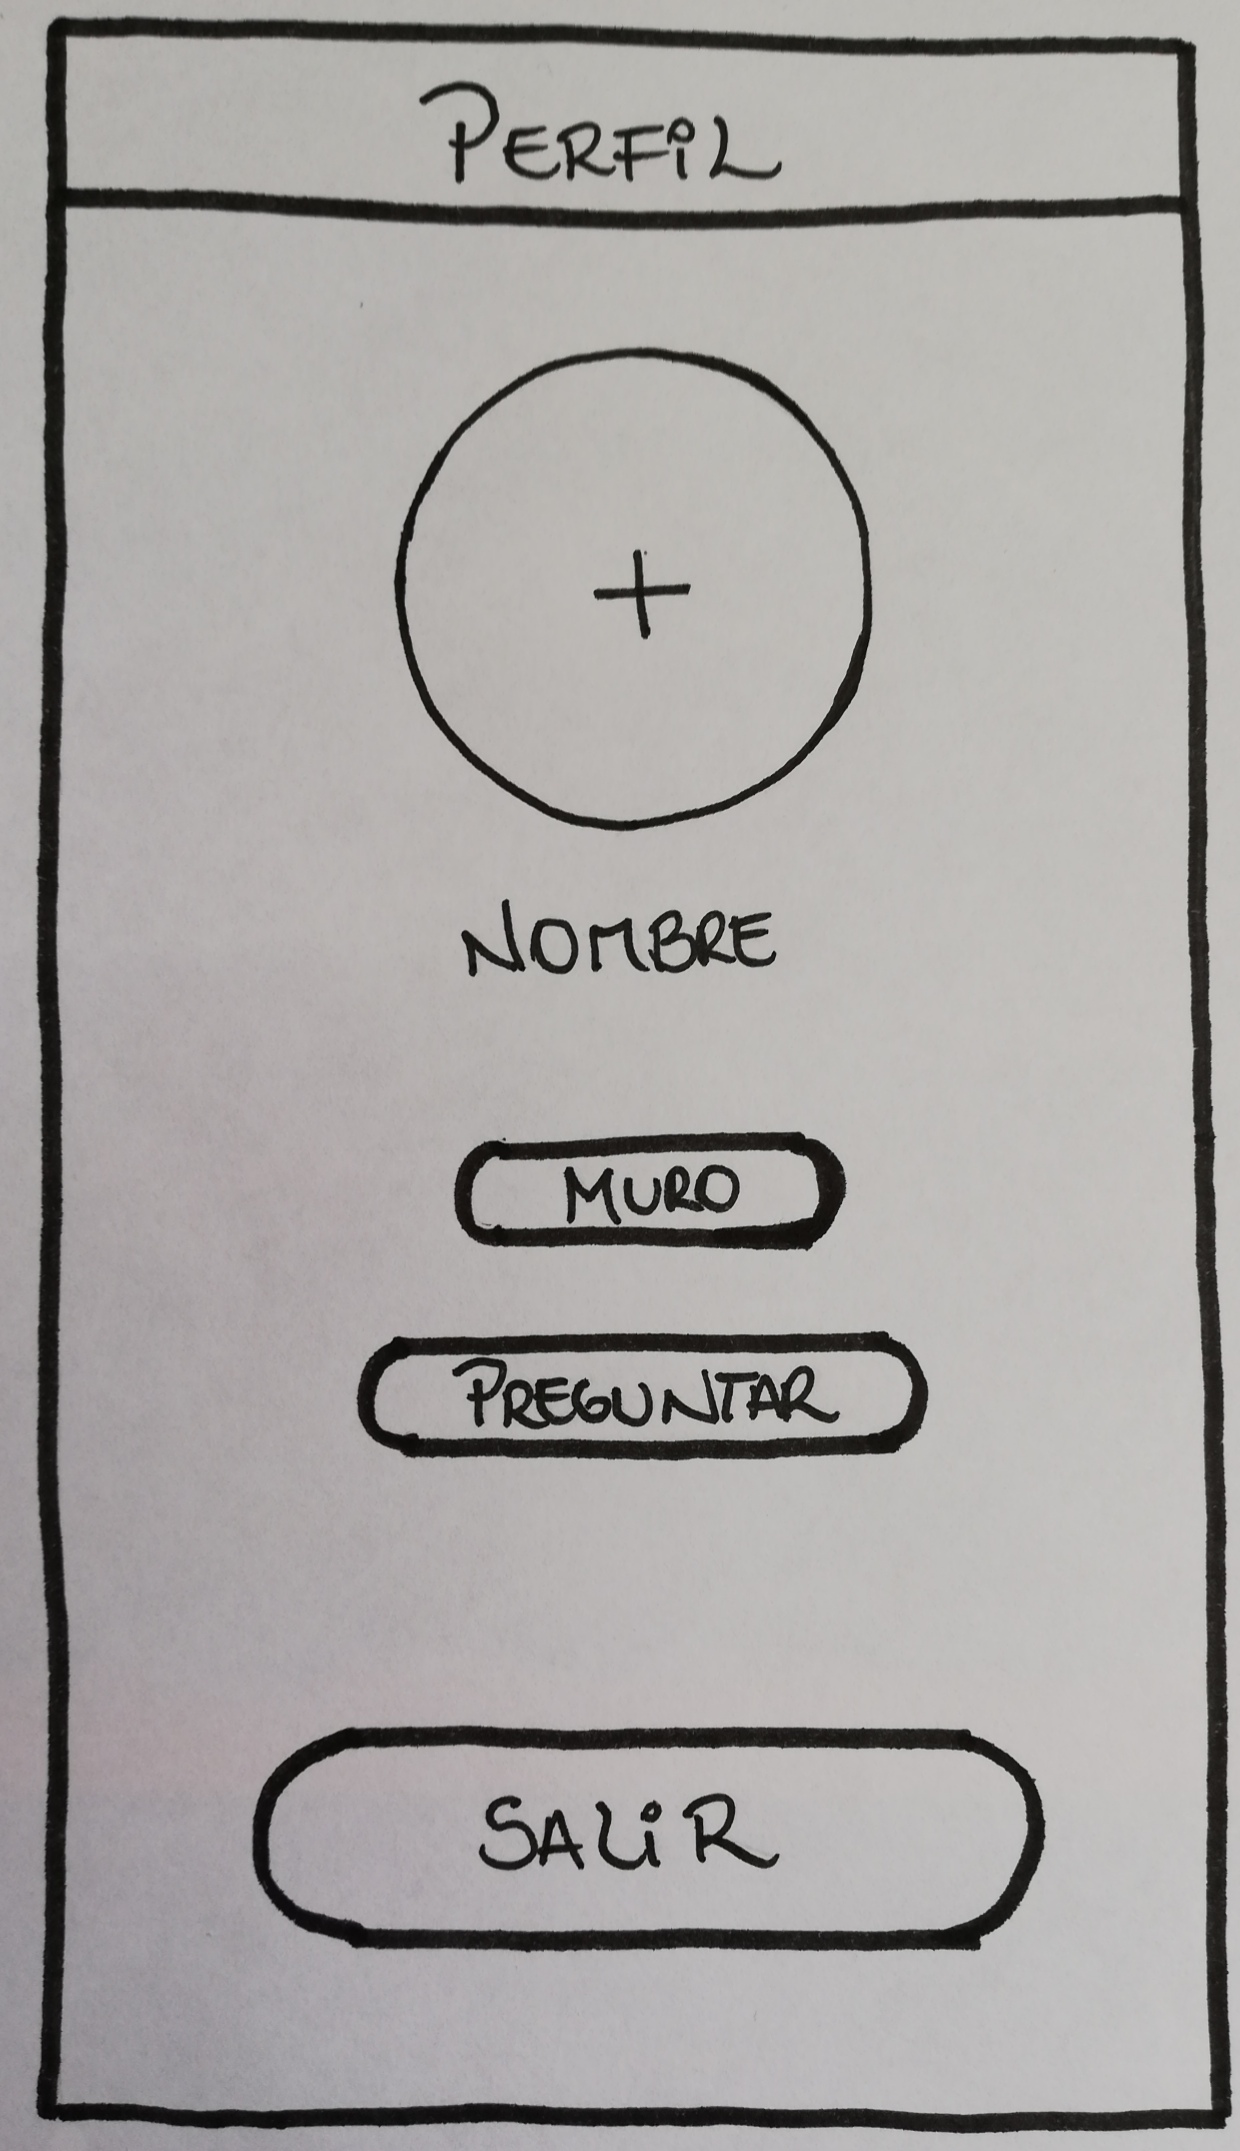 PERFIL
+
NOMBRE
MURO
PREGUNTAR
SALIR